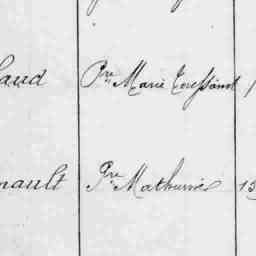 aud Pre Marie Toussaint 1
nault Pre Mathurin 13